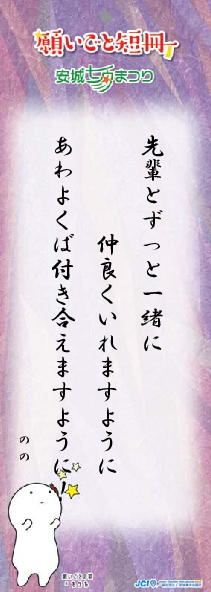 願いごと短冊
安城七夕まつり
先輩とずっと一緒に
仲良くいれますように
あわよくば付き合えますように!
のの
JCI